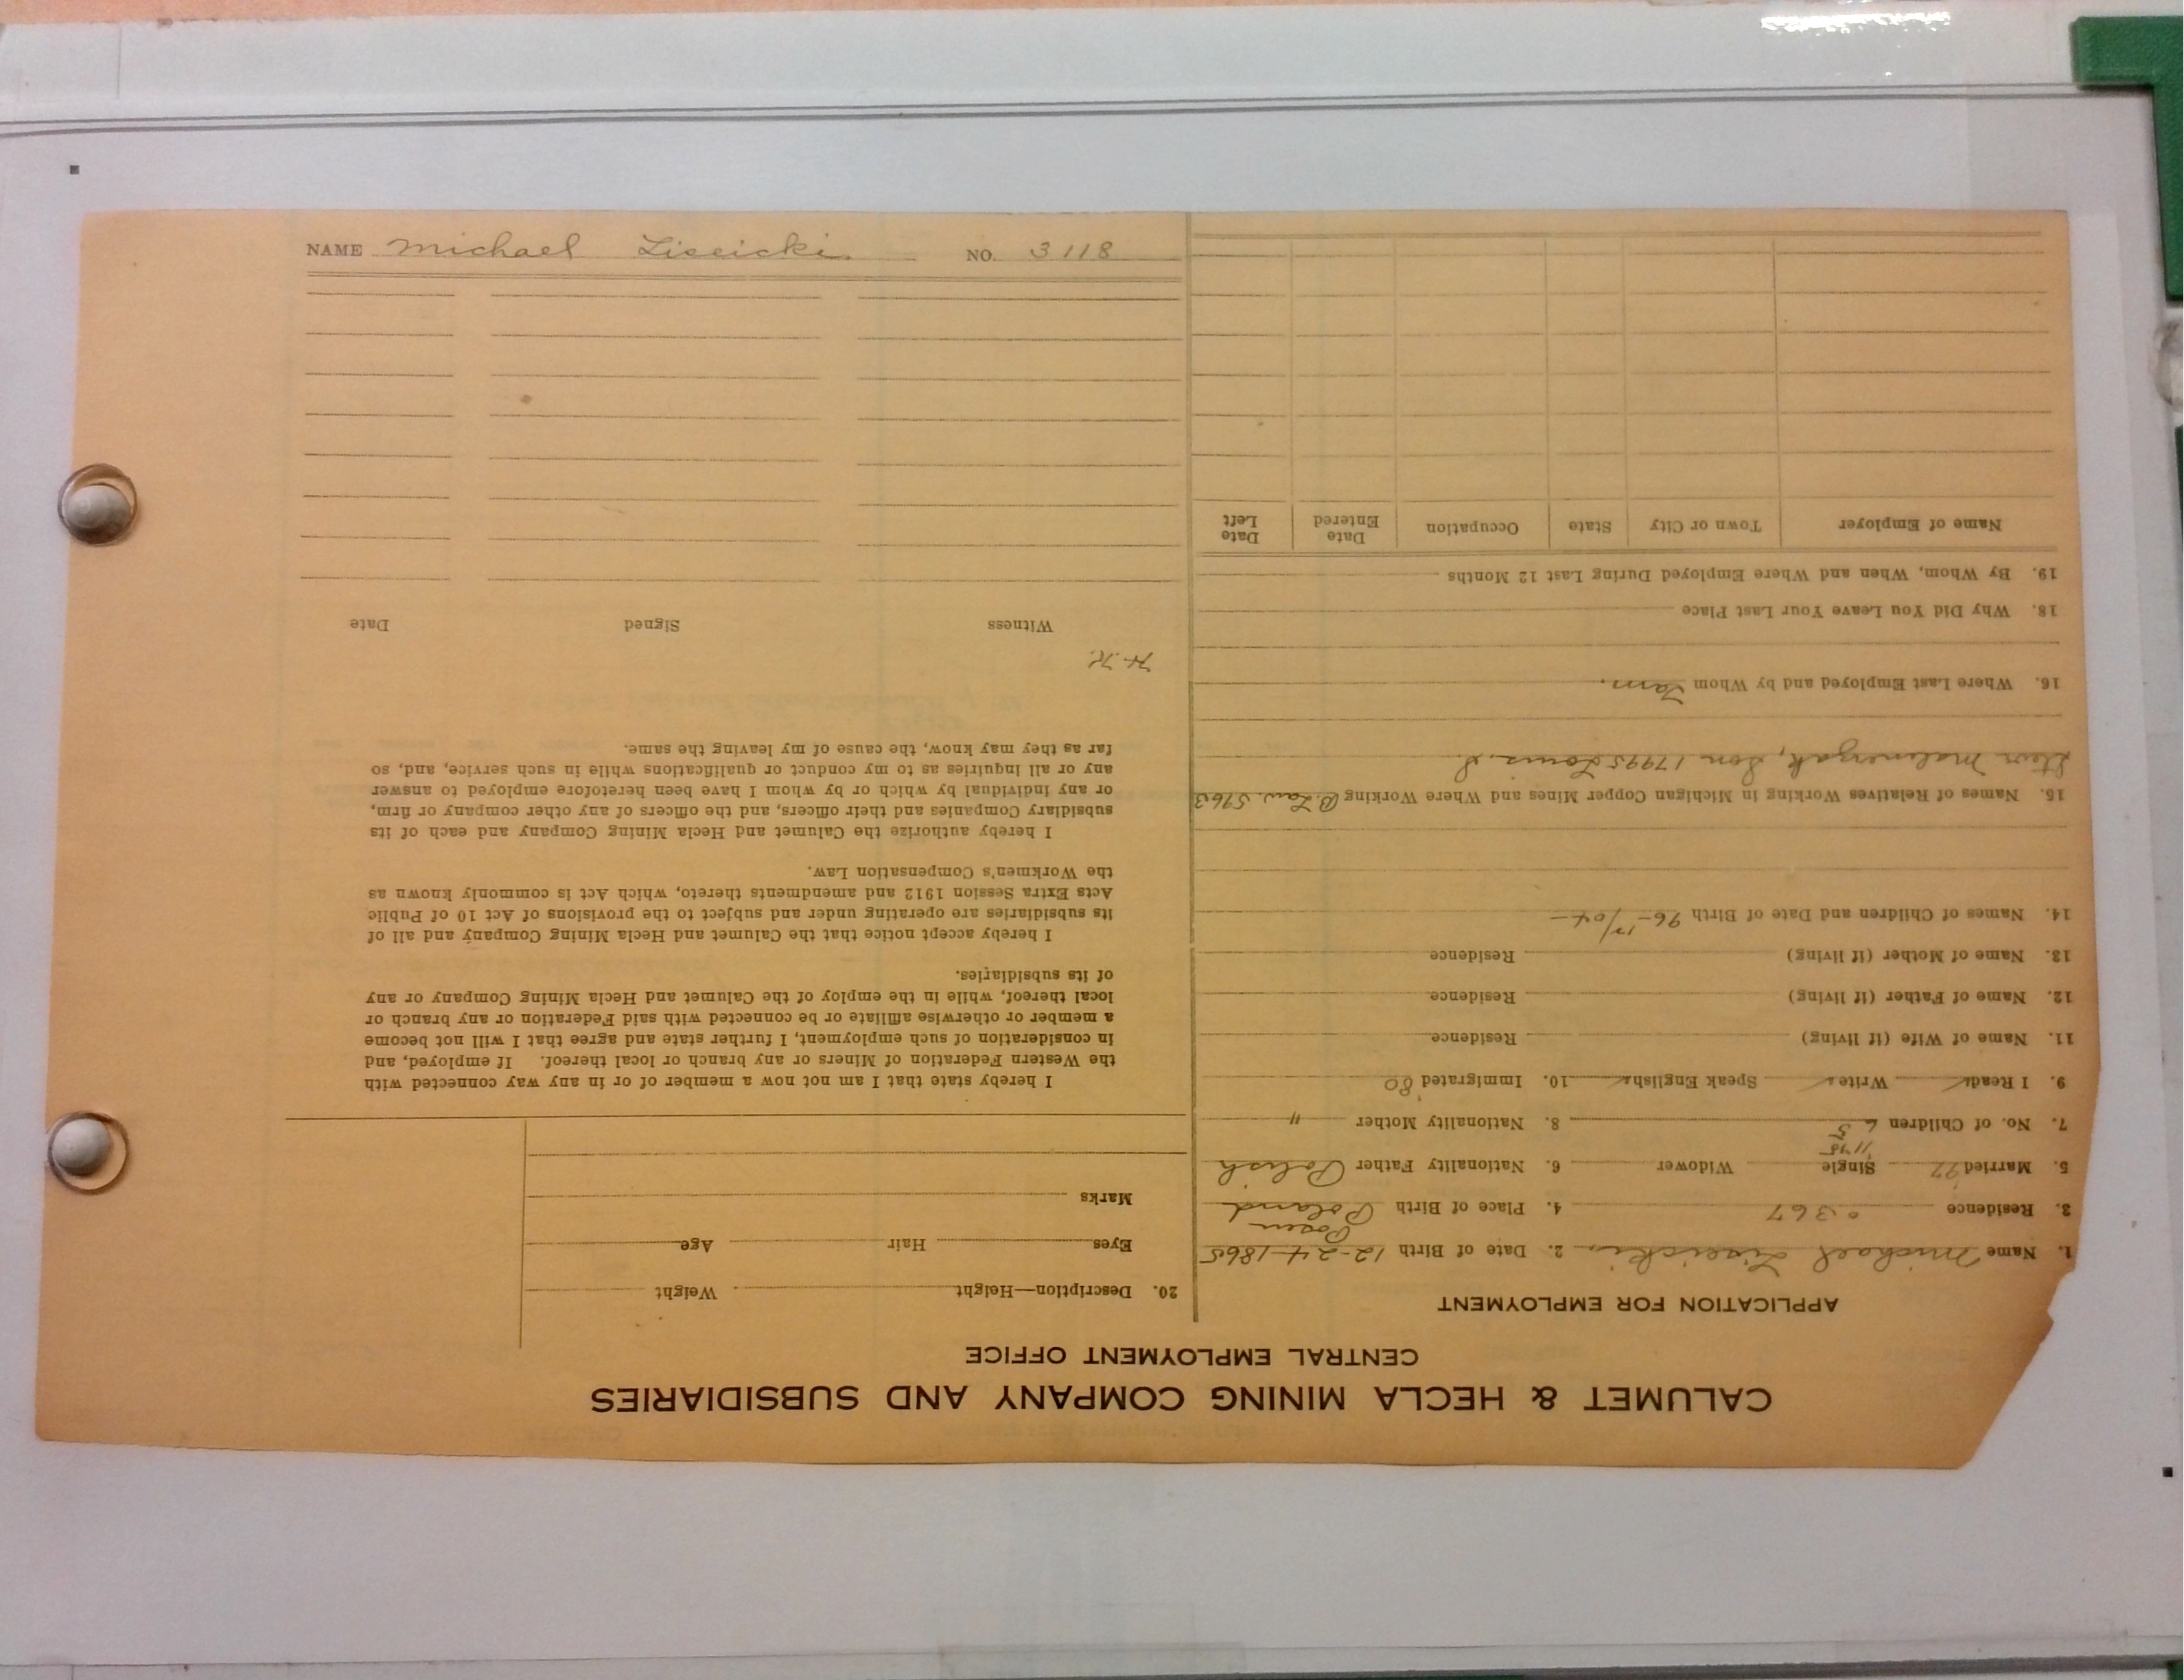 CALUMET & HECLA MINING COMPANY AND SUBSIDIARIES
CENTRAL EMPLOYMENT OFFICE
APPLICATION FOR EMPLOYMENT
1. Name Michael Liseicki. 2. Date of Birth 12-24-1865
Posen
3. Residence 0367 4. Place of Birth Poland
5. Married 97 Single Widower 6. Nationality Father Polish
7. No. of Children 5 8. Nationality Mother "
9. I Read Write Speak English 10. Immigrated 80
11. Name of Wife (if living) Residence
12. Name of Father (if living) Residence
13. Name of Mother (if living) Residence
14. Names of Children and Date of Birth 96- 17/04-
15. Names of Relatives Working in Michigan Copper Mines and Where Working B. Law. 5963
Malinezak, Son 17995 Louis.
16. Where Last Employed and by Whom Tam.
18. Why Did You Leave Your Last Place
19. By Whom, When and Where Employed During Last 12 Months
Name of Employer Town or City State Occupation Date Entered Date Left
20. Description—Height Weight
Eyes Hair Age
Marks
I hereby state that I am not now a member of or in any way connected with
the Western Federation of Miners or any branch or local thereof. If employed, and
in consideration of such employment, I further state and agree that I will not become
a member or otherwise affiliate or be connected with said Federation or any branch or
local thereof, while in the employ of the Calumet and Hecla Mining Company or any
of its subsidiaries.
I hereby accept notice that the Calumet and Hecla Mining Company and all of
its subsidiaries are operating under and subject to the provisions of Act 10 of Public
Acts Extra Session 1912 and amendments thereto, which Act is commonly known as
the Workmen's Compensation Law.
I hereby authorize the Calumet and Hecla Mining Company and each of its
subsidiary Companies and their officers, and the officers of any other company or firm,
or any individual by which or by whom I have been heretofore employed to answer
any or all inquiries as to my conduct or qualifications while in such service, and, so
far as they may know, the cause of my leaving the same.
H.K.
Witness Signed Date
NAME Michael Liseicki. NO. 3118